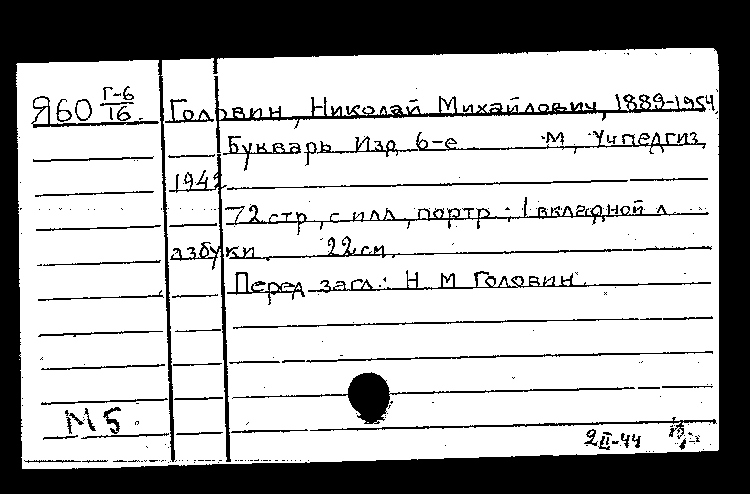 Я60 Г-6/16. Головин, Николай Михайлович, 1889-1954
Букварь Изд 6-е М, Учпедгиз,
1942
72 стр, с илл, портр; 1 вкладной л
азбуки. 22 см.
Перед загл.: Н М Головин.
М 5.
2 II-44